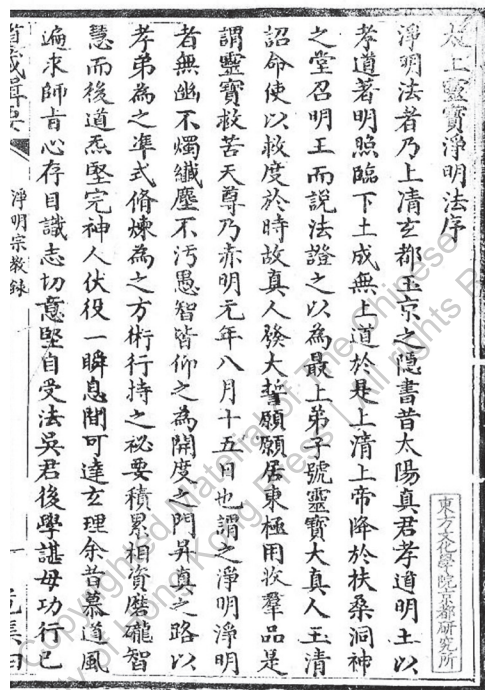 太上靈寶淨明法序
淨明法者乃上清玄都玉京之隱書昔太陽真君孝道明王以
孝道著明照臨下土成無上道於是上清上帝降於扶桑洞神
之堂召明王而說法證之以為最上弟子號靈寶大真人玉清
詔命使以救度於時故真人發大誓願願居東極用救羣品是
謂靈寶救苦天尊乃赤明元年八月十五日也謂之淨明淨明
者無幽不燭纖塵不汚愚智皆仰之為開度之門昇真之路以
孝弟為之準式脩煉為之方術行持之祕要積累相資磨礲智
慧而後道炁堅完神人伏役一瞬息間可達玄理余昔慕道風
遍求師旨心存目識志切意堅自受法吳君後學諶母功行已
道藏輯要
淨明宗教錄
一
東方文化學院京都研究所
Copyrighted Material of The Chinese
of Hong Kong Press | All rights